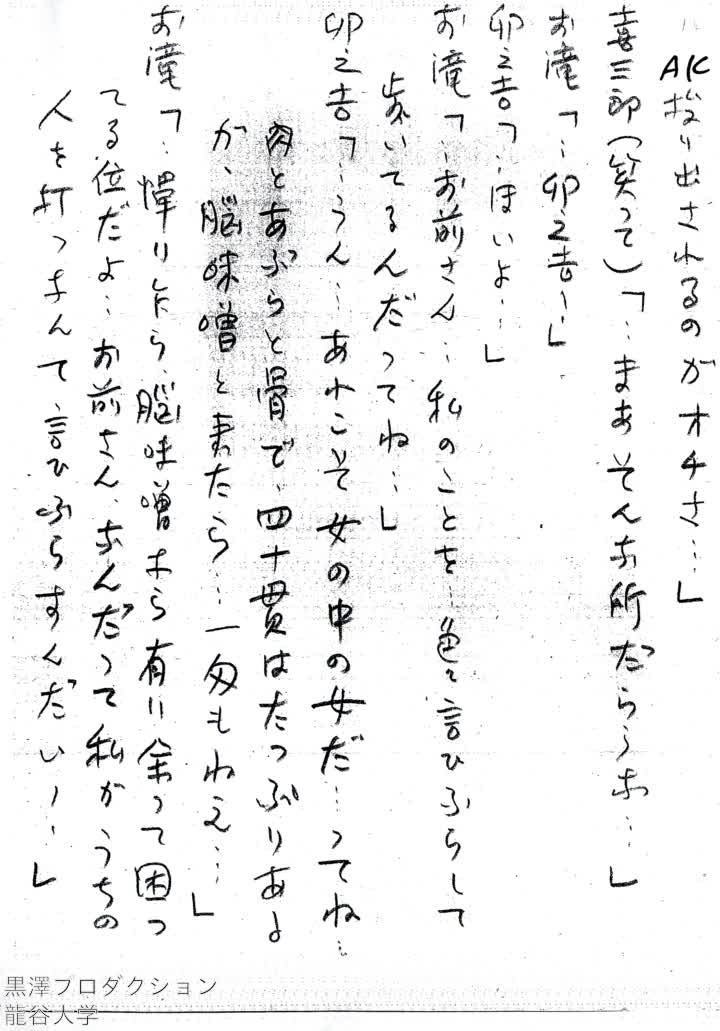 AK 放り出されるのがオチさ…」
喜三郎(笑って)「…まあそんな所だらうな…」
お滝「…卯之吉ー」
卯之吉「…ほいよ…」
お滝「…お前さん…私のことを…色々言ひふらして
歩いてるんだってね…」
卯之吉「…うん…あれこそ女の中の女だ…ってね…
肉とあぶらと骨で、四十貫はたっぷりあよ
が、脳味噌と来たら…一匁もねえ…」
お滝「…憚り乍ら、脳味噌なら有り余って困っ
てる位だよ…お前さん、なんだって私がうちの
人を打つなんて、言ひふらすんだいー…」
黒澤プロダクション
龍谷大学